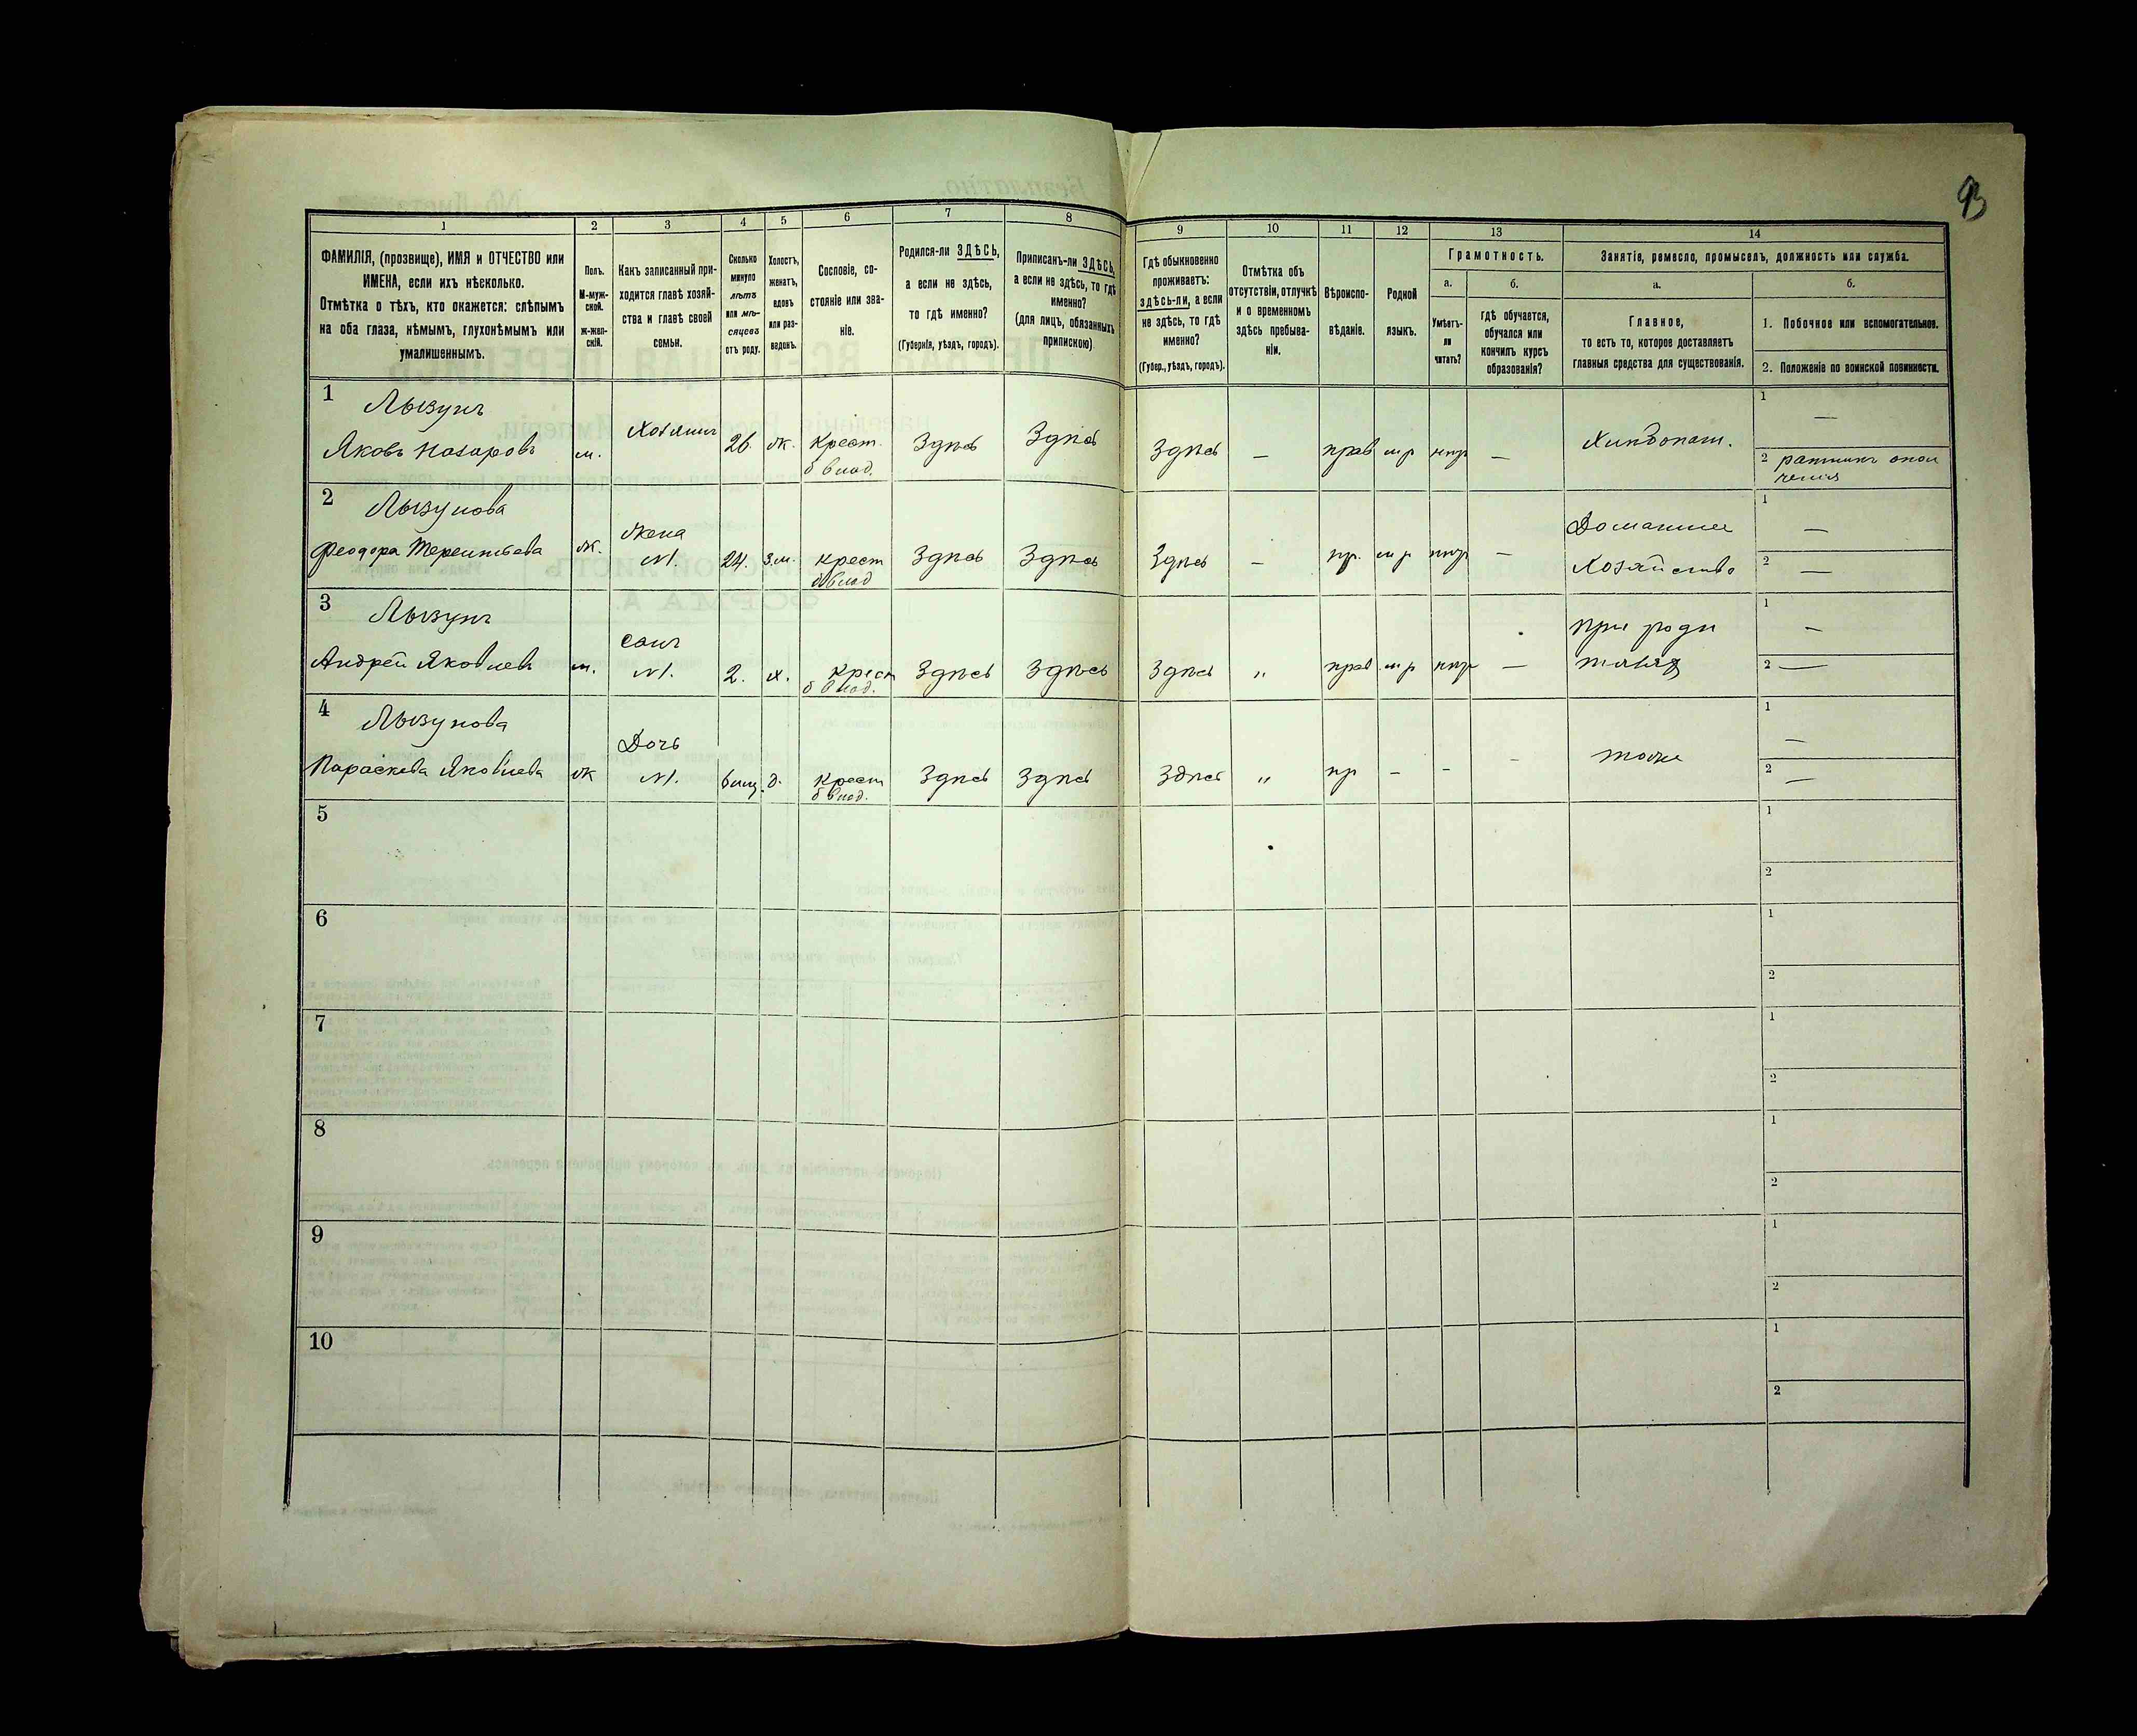 93
1 2 3 4 5 6 7 8 9 10 11 12 13 14
ФАМИЛІЯ, (прозвище), ИМЯ и ОТЧЕСТВО или
ИМЕНА, если ихъ нѣсколько.
Отмѣтка о тѣхъ, кто окажется: слѣпымъ
на оба глаза, нѣмымъ, глухонѣмымъ или
умалишеннымъ.
Полъ.
М-муж-
ской.
ж-жен-
скій.
Какъ записанный при-
ходится главѣ хозяй-
ства и главѣ своей
семьи.
Сколько
минуло
лѣтъ
или мѣ-
сяцевъ
отъ роду.
Холостъ,
женатъ,
вдовъ
или раз-
веденъ.
Сословіе, со-
стояніе или зва-
ніе.
Родился-ли ЗДѢСЬ,
а если не здѣсь,
то гдѣ именно?
(Губернія, уѣздъ, городъ).
Приписанъ-ли ЗДѢСЬ,
а если не здѣсь, то гдѣ
именно?
(для лицъ, обязанныхъ
припискою)
Гдѣ обыкновенно
проживаетъ:
здѣсь-ли, а если
не здѣсь, то гдѣ
именно?
(Губер., уѣздъ, городъ).
Отмѣтка объ
отсутствіи, отлучкѣ
и о временномъ
здѣсь пребыва-
ніи.
Вѣроиспо-
вѣданіе.
Родной
языкъ.
Грамотность.
а.
Умѣетъ-
ли
читать?
б.
гдѣ обучается,
обучался или
кончилъ курсъ
образованія?
Занятіе, ремесло, промыселъ, должность или служба.
а.
Главное,
то есть то, которое доставляетъ
главныя средства для существованія.
б.
1. Побочное или вспомогательное.
2. Положеніе по воинской повинности.
1 Лызунъ
Яковъ Назаровъ м. Хозяинъ 26. ж. крест. Здѣсь Здѣсь Здѣсь — прав мр нгр — Хлѣбопаш. 1 —
б влад. 2 ратникъ опол
ченія
2 Лызунова
Феодора Терентьева ж. жена 24. з.м. крест Здѣсь Здѣсь Здѣсь — пр. мр нгр — Домашнее 1 —
№1. б влад Хозяйство 2 —
3 Лызунъ
Андрей Яковлевъ м. сынъ 2. х. крест Здѣсь Здѣсь Здѣсь " прав мр нгр — при роди 1 —
№1. б влад. теляхъ 2 —
4 Лызунова
Параскева Яковлева ж Дочь 6 мц. д. крест Здѣсь Здѣсь Здѣсь " пр - - - тоже 1 —
№1. б влад. 2 —
5 1
2
6 1
2
7 1
2
8 1
2
9 1
2
10 1
2